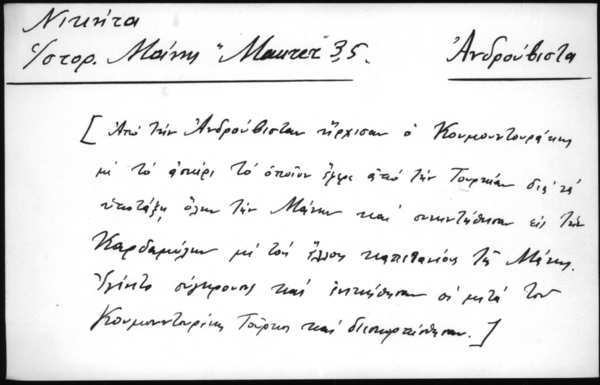 Νικήτα
Ἱστορ. Μάνης "Maurer" 35.
Ἀνδρούβιστα
[Ἀπό τήν Ἀνδρούβισταν ἤρχισαν ὁ Κουμουντουράκης
μέ τό ἀσκέρι τό ὁποῖον ἔφερε ἀπό τήν Τουρκίαν διά νά
ὑποτάξῃ ὅλην τήν Μάνην καί συνεντήθησαν εἰς τήν
Καρδαμύλην μέ τούς ἄλλους καπιτανέους τῆς Μάνης.
Ἐγένετο σύγκρουσις καί ἐνικήθησαν οἱ μετά τοῦ
Κουμουντουράκη Τοῦρκοι καί διεσκορπίσθησαν.]